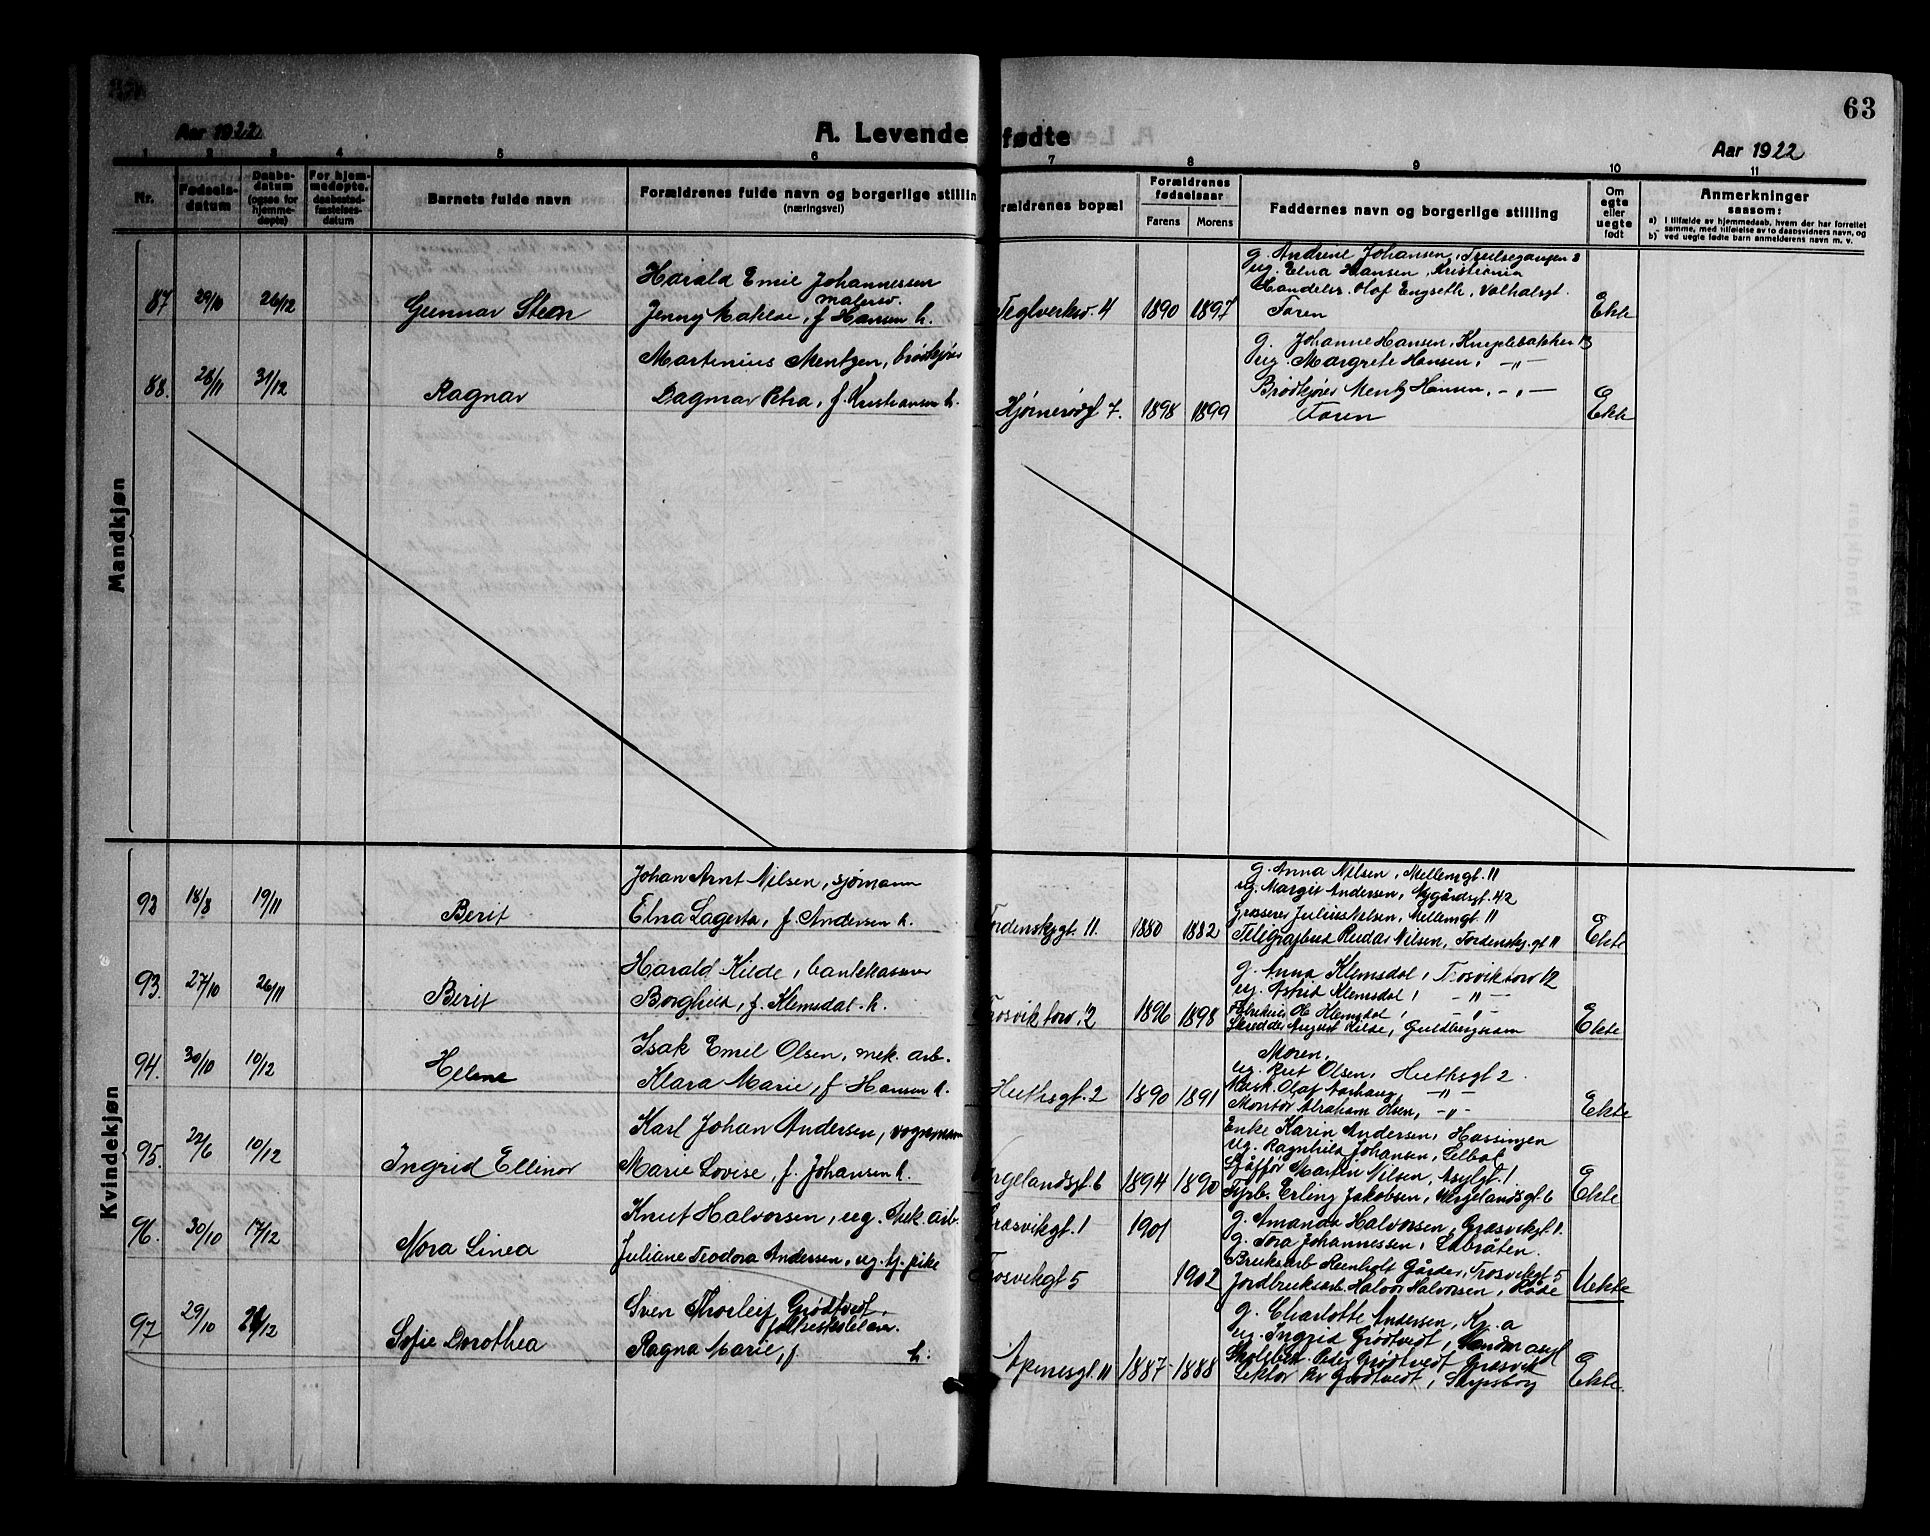 63
Aar 1922
A. Levende fødte
Aar 1922
1 2 3 4 5 6 7 8 9 10 11
Nr.
Fødsels-
datum
Daabs-
datum
(ogsaa for
hjemme-
døpte)
For hjem-
medøpte,
daabsstad-
fæstelses-
datum
Barnets fulde navn
Forældrenes fulde navn og borgerlige stilling
(næringsvei)
rældrenes bopæl
Forældrenes
fødselsaar
Farens Morens
Faddernes navn og borgerlige stilling
Om
egte
eller
uegte
født
Anmerkninger
saasom:
a) I tilfælde av hjemmedaab, hvem der har forrettet
samme, med tilføielse av to daabsvidners navn, og
b) ved uegte fødte barn anmelderens navn m. v.
Mandkjøn
87 29/10 26/12 Gunnar Steen
Harald Emil Johannessen
malersv.
Jenny f Hansen h.
Teglverksv. 4 1890 1897
g. Andrine Johansen,
ug. Elna Hansen, Kristiania
Handelsr. Olaf Engseth, Valhalsgt.
Faren
Ekte
88. 28/11 31/12 Ragnar
Martinius Mentzen, brødkjører
Dagmar Petra, f. Kristiansen h.
Hjørnerødgt 7. 1898 1899
g. Johanne Hansen, 13
ug. Margrete Hansen, -"-
Brødkjører Mentz Hansen, -"-
Faren
Ekte
Kvindekjøn
92 18/8 19/11 Berit
Johan Arnt Nilsen, sjømann
Elna Lagerta, f. Andersen h.
Tordenskjgt. 11. 1880 1882
g. Anna Nilsen, Mellemgt. 11
ug. Margit Andersen, Nygårdsgt. 42
Grosserer Julius Nilsen, Mellemgt. 11
Telegrafbud Reidar Nilsen, Tordenskj.gt 11
Ekte
93. 27/10 26/11 Berit
Harald Kilde, bankkasserer
Borghild, f. Klemsdal h.
Trosvik torv. 12 1896 1898
g. Anna Klemsdal, Trosvik torv 12
ug. Astrid Klemsdal, -"-
Klemsdal, -"-
Skredder August Kilde, Guldbergsam
Ekte
94. 30/10 10/12 Helene
Isak Emil Olsen, mek. arb.
Klara Marie, f Hansen h.
Huthsgt. 2 1890 1891
Moren,
ug. Rut Olsen, Huthsgt 2.
Mask. Olaf Aarhaug, -"-
Montør Abraham Olsen, -"-
Ekte
95. 22/6 10/12 Ingrid Ellinor
Karl Johan Andersen, vognmann
Marie Lovise, f. Johansen h.
rgelandsgt. 6 1894 1890
Enke Karin Andersen, Hassingen
ug. Ragnhild Johansen, Selbak
Sjåffør Martin Nilsen, Asylgt. 1.
Fyrb. Erling Jakobsen, Wergelandsgt 6
Ekte
96. 30/10 17/12 Nora Linea
Knut Halvorsen, ug. mek. arb.
Juliane Teodora Andersen, ug. tj. pike
Græsvikgt. 1 1901
Trosvikgt 5 1902
g. Amanda Halvorsen, Græsvikgt 1.
g. Tora Johannessen, Labråten.
Bruksarb Reinholt Gårder, Trosvikgt 5
Jordbruksarb. Halvor Halvorsen, Råde
Uekte
97 29/10 26/12 Sofie Dorothea
Sven Thorleif Grødtvedt,
Ragna Marie, f h.
Apenesgt. 11 1887 1888
g. Charlotte Andersen, Kr. a
ug. Ingrid Grødtvedt,
Skolebest. Peder Grødtvedt Græsvik
Lektor Per Grødtvedt, Sarpsborg
Ekte.